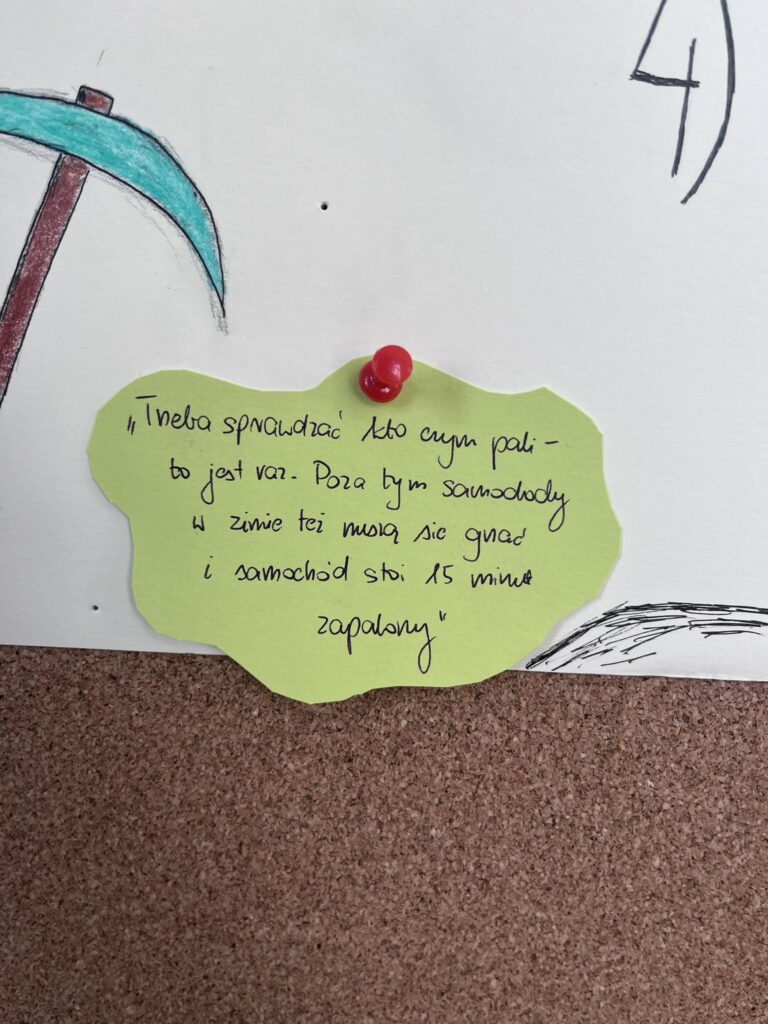 4)
„Trzeba sprawdzać kto czym pali -
to jest raz. Poza tym samochody
w zimie też muszą się grzać
i samochód stoi 15 minut
zapalony"